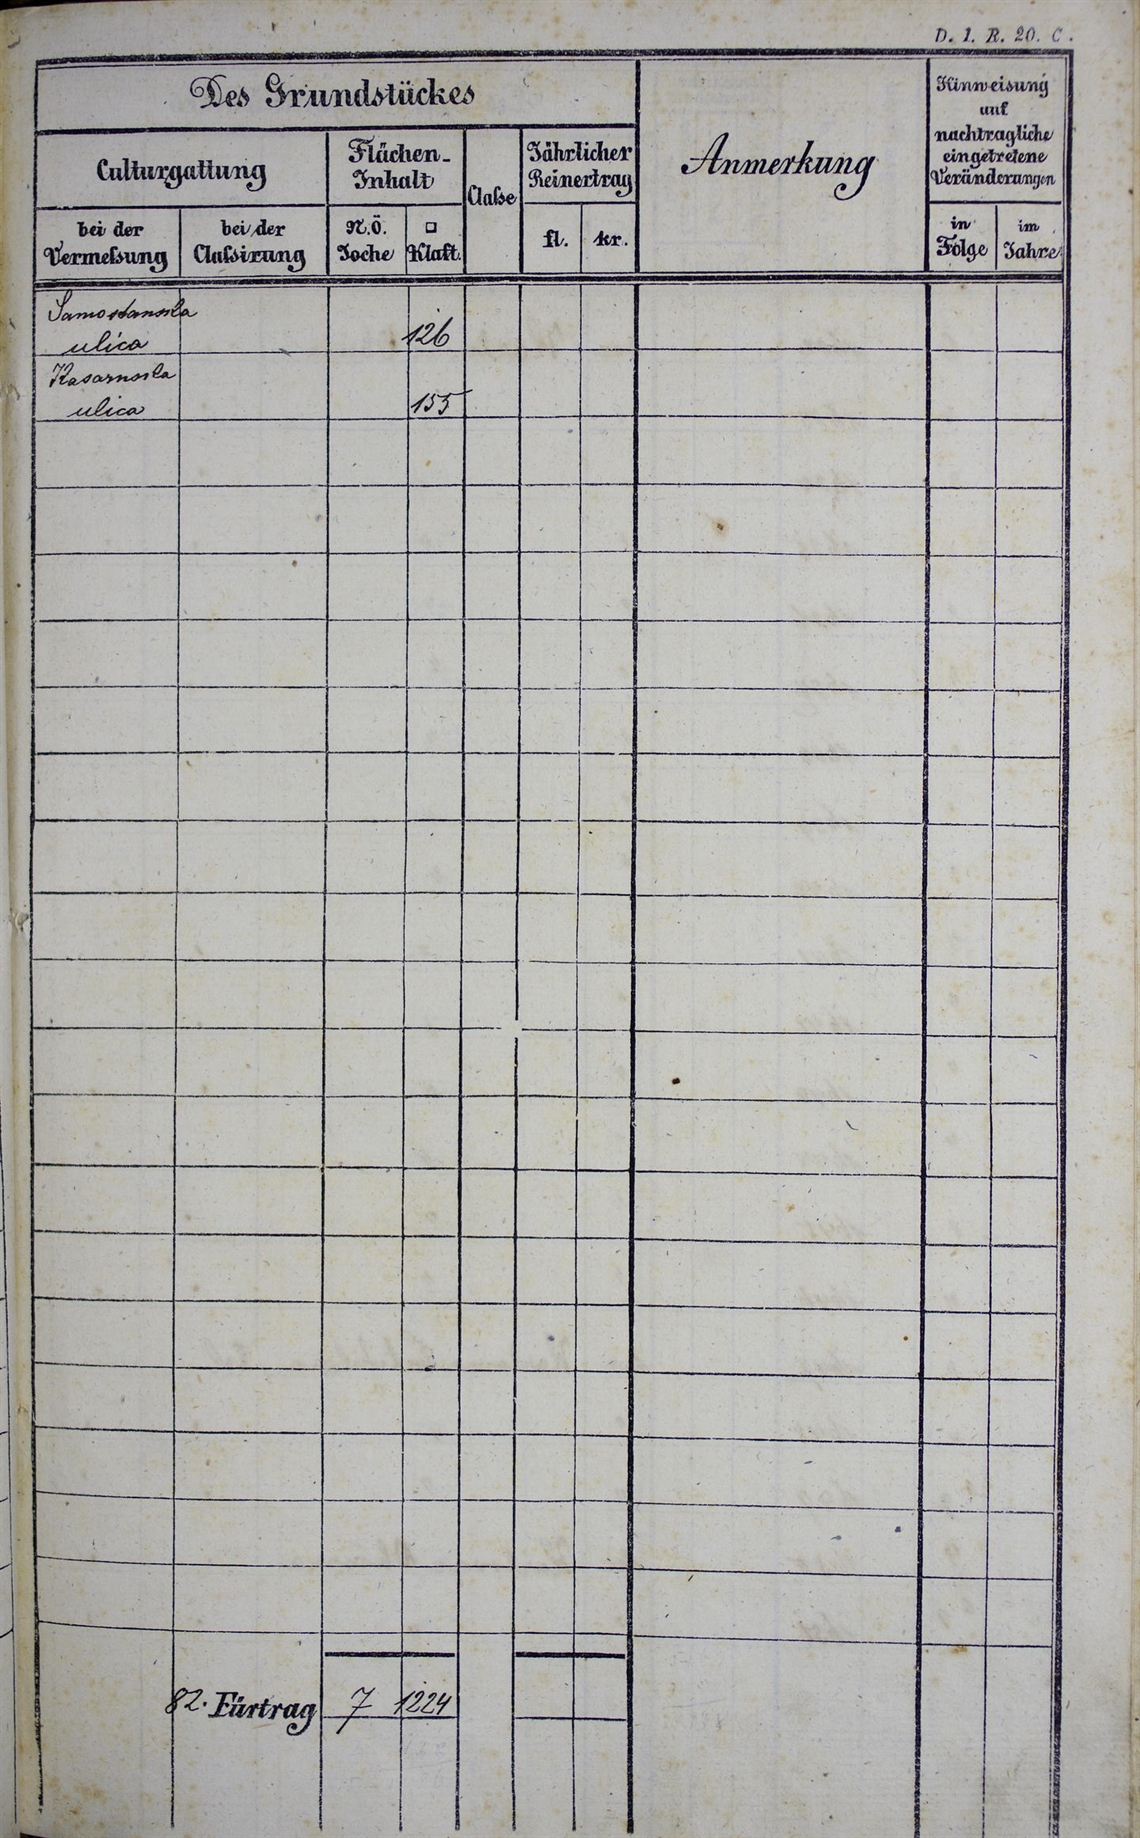 D. 1. R. 20. C.
Des Grundstückes
Culturgattung
Flächen-
Inhalt
Classe
Jährlicher
Reinertrag
Anmerkung
Hinweisung
auf
nachtragliche
eingetretene
Veränderungen
bei der
Vermessung
bei der
Classirung
N.Ö.
Joche
□
Klaft.
fl.
kr.
in
Folge
im
Jahre
Samostanska
ulica
126
Kasarnska
ulica
155
82. Fürtrag 7 1224